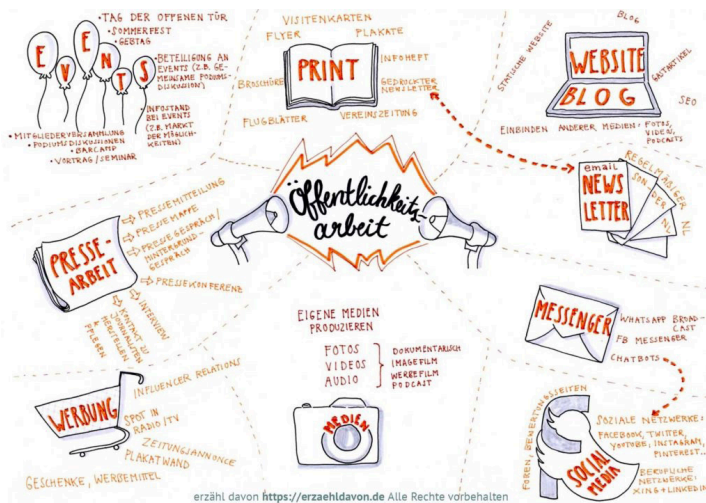 EVENTS
• TAG DER OFFENEN TÜR
• SOMMERFEST
• GEBTAG
• BETEILIGUNG AN
EVENTS (Z.B. GE-
MEINSAME PODIUMS-
DISKUSSION)
• INFOSTAND
BEI EVENTS
(Z.B. MARKT
DER MÖGLICH-
KEITEN)
• MITGLIEDERVERSAMMLUNG
• PODIUMSDISKUSSIONEN
• BARCAMP
• VORTRAG/SEMINAR
VISITENKARTEN
FLYER
PLAKATE
PRINT
INFOHEFT
BROSCHÜRE
GEDRUCKTER
NEWSLETTER
FLUGBLÄTTER
VEREINSZEITUNG
BLOG
STATISCHE WEBSITE
WEBSITE
BLOG
GASTARTIKEL
SEO
EINBINDEN ANDERER MEDIEN: FOTOS,
VIDEOS,
PODCASTS
email
NEWS
LETTER
REGELMÄßIGER
NL
SON
DER
NL
Öffentlichkeits-
arbeit
PRESSE-
ARBEIT
PRESSEMITTEILUNG
PRESSEMAPPE
PRESSEGESPRÄCH/
HINTERGRUND-
GESPRÄCH
PRESSEKONFERENZ
INTERVIEW
KONTAKT ZU
JOURNALISTEN
HERSTELLEN
& PFLEGEN
EIGENE MEDIEN
PRODUZIEREN
FOTOS
VIDEOS
AUDIO
DOKUMENTARISCH
IMAGEFILM
WERBEFILM
PODCAST
MEDIEN
MESSENGER
WHATSAPP BROAD-
CAST
FB MESSENGER
CHATBOTS
WERBUNG
INFLUENCER RELATIONS
SPOT IN
RADIO/TV
ZEITUNGSANNONCE
PLAKATWAND
GESCHENKE, WERBEMITTEL
FOREN, BEWERTUNGSSEITEN
SOCIAL
MEDIA
SOZIALE NETZWERKE:
FACEBOOK, TWITTER,
YOUTUBE, INSTAGRAM,
PINTEREST...
BERUFLICHE
NETZWERKE:
XING + LINKEDIN
erzähl davon https://erzaehldavon.de Alle Rechte vorbehalten